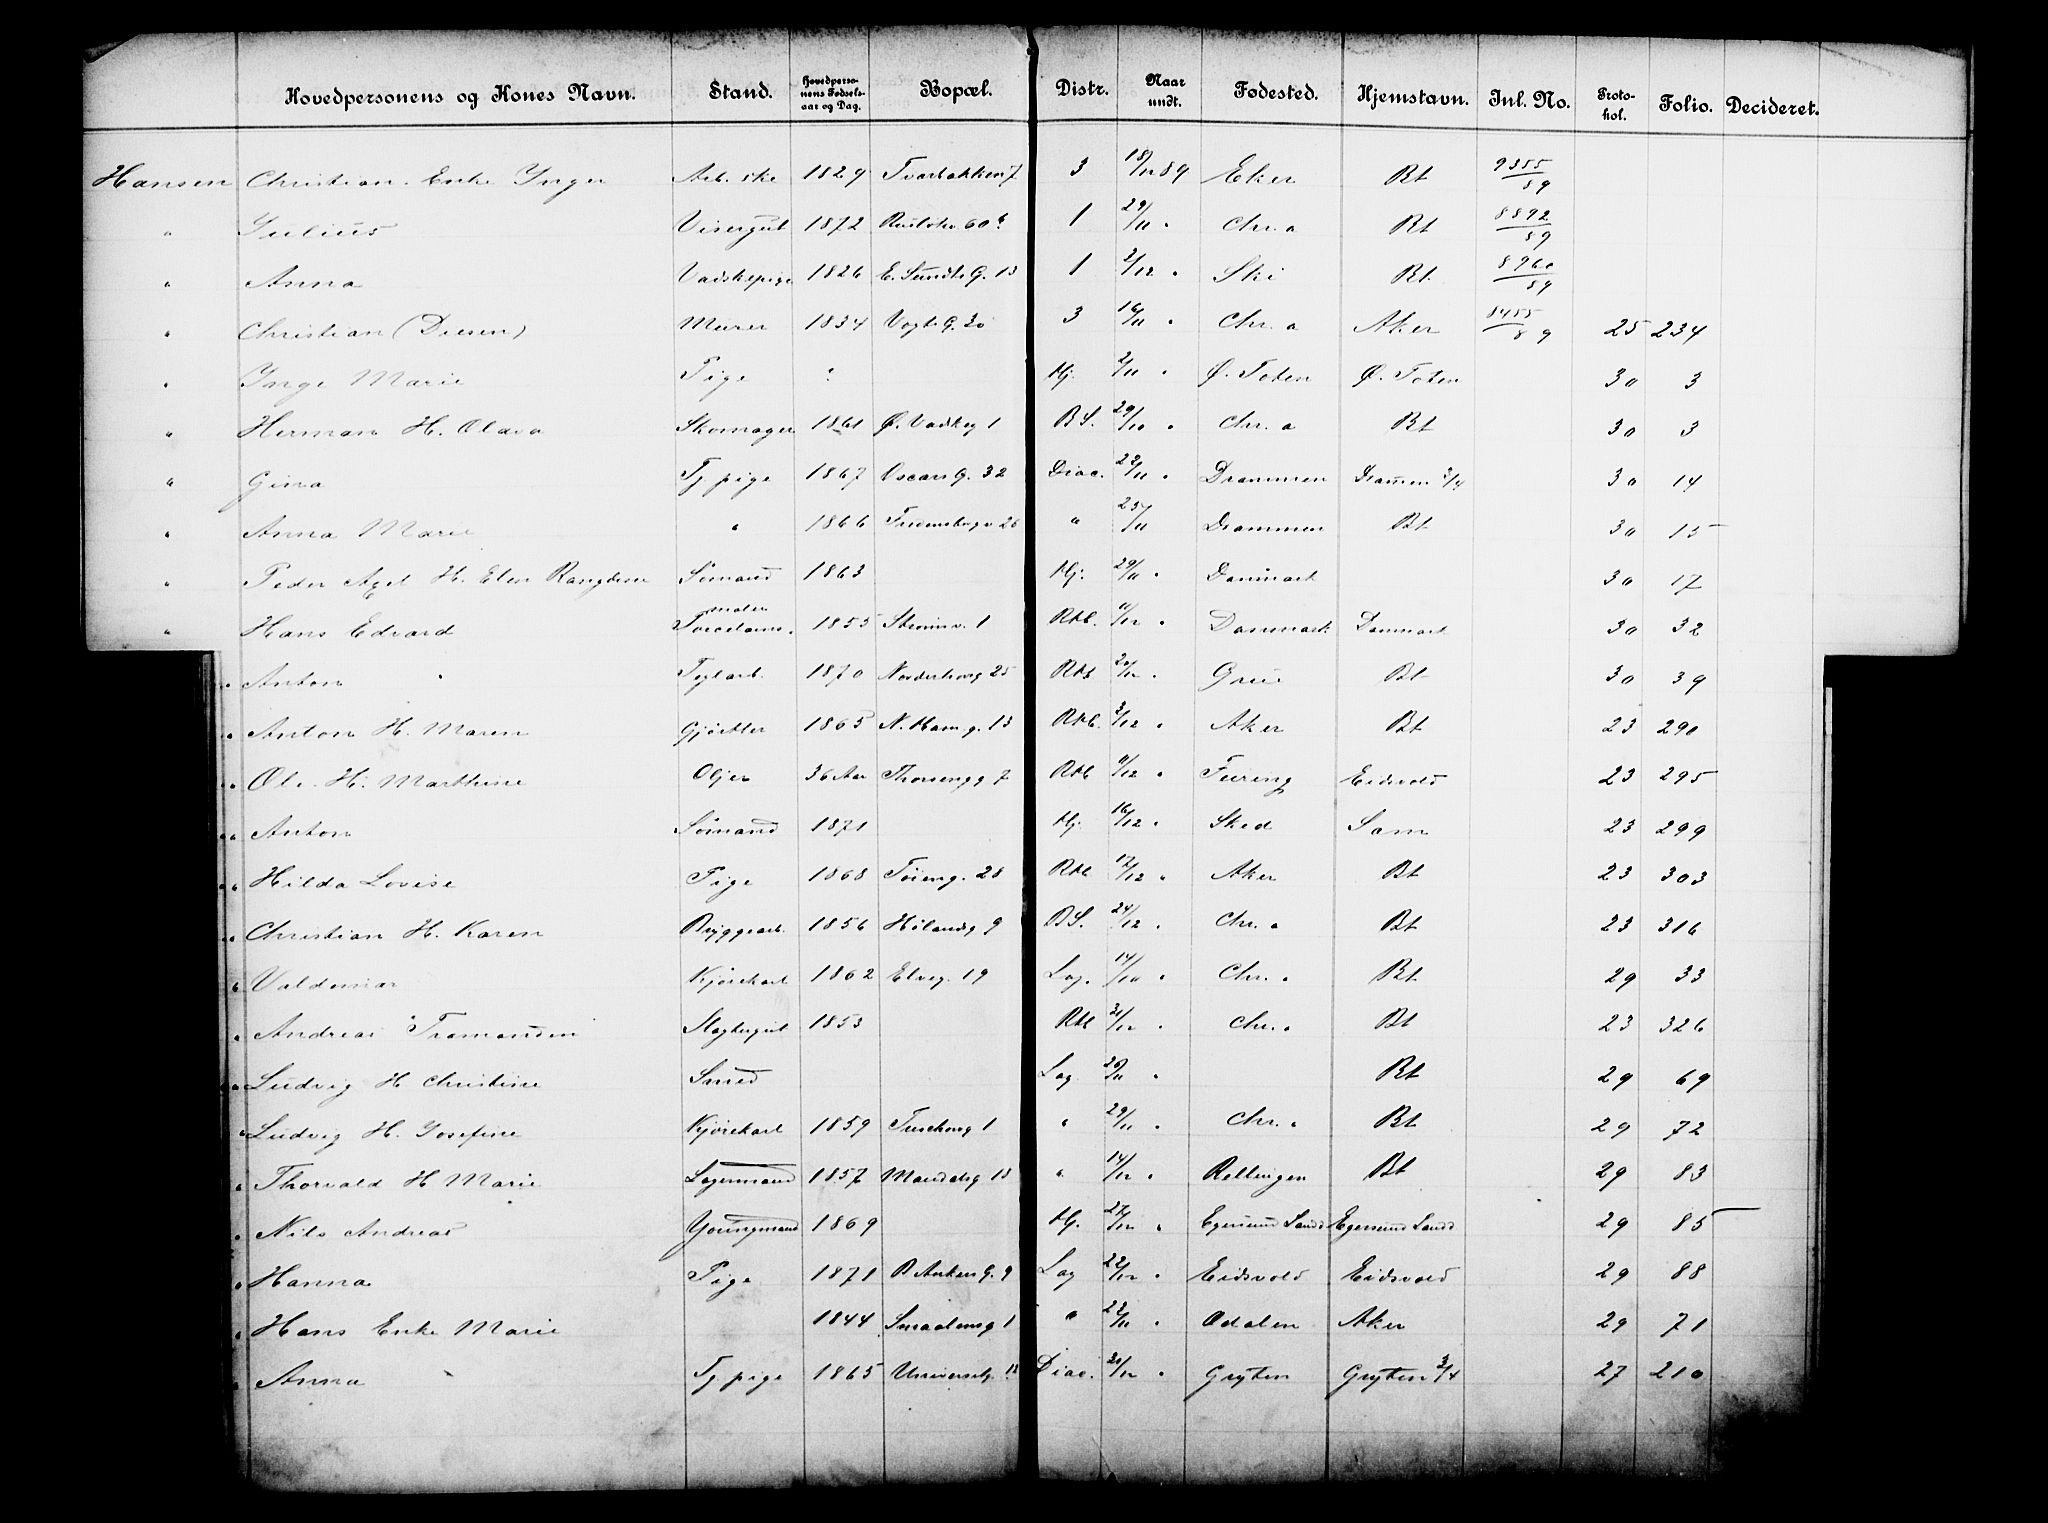 Hovedpersonens og Kones Navn. Stand. Hovedperso-nens Fødsels-aar og Dag. Bopæl. Distr. Naar undt. Fødested. Hjemstavn. Jnl. No. Proto-kol. Folio. Decideret.
Hansen Christian. Enke Inger Arb. ske 1829 Tvarbakken 7 3 18/12 89 Eker Bt 9355/89
" Julius Visergut 1872 60 b 1 29/11 " Chr.a Bt 8892/89
" Anna Vadskepige 1826 E. Sundts G. 13 1 2/12 " Ski Bt 8960/89
" Christian (Diesen) Murer 1834 Vogts G. 30 3 16/11 " Chr.a Aker 8455/89 25 234
" Inge Marie Pige " Hj. 2/11 " Ø. Toten Ø. Toten 30 3
" Herman H. Olava Skomager 1861 Ø. Vadskg 1 BS. 29/10 " Chr.a Bt 30 3
" Gina Tj pige 1867 Oscars G. 32 Diac. 22/11 " Drammen Dramen 3/4 30 14
" Anna Marie " 1866 Fredensborgv 26 " 25/11 Drammen Bt 30 15
" Peder Axel H. Elen Sømand 1863 Hj. 29/11 " Danmark 30 17
" Hans Edvard Porcelæns. maler 1855 1 Rkh. 11/12 " Danmark Danmark 30 32
" Anton " Teglarb. 1870 Norderhovg 25 Rkh 20/12 " Grue Bt 30 39
" Anton H. Maren Gjørtler 1865 N. Hamg. 13 Rkh. 3/12 " Aker Bt 23 290
" Ole H. Marthine Oljer 36 Aar 7 Rkh 11/12 " Feiring Eidsvold 23 295
" Anton Sømand 1871 Hj. 16/12 " Sked Sam 23 299
" Hilda Lovise Pige 1868 Tøieng. 28 Rkh 17/12 " Aker Bt 23 303
" Christian H. Karen Bryggearb. 1856 Hølandsg 9 BS. 24/12 " Chr.a Bt 23 316
" Valdemar Kjørekarl 1862 Elveg. 19 Lag. 14/10 " Chr.a Bt 29 33
" Andreas "Tramanden" Slagtergut 1853 Rkh 31/12 " Chr.a Bt 23 326
" Ludvig H Christine Smed Lag 20/11 " Bt 29 69
" Ludvig H. Josefine Kjørekarl 1859 1 " 29/11 " Chr.a Bt 29 72
" Thorvald H Marie Lagermand 1857 Mandalsg 13 " 14/12 " Rollingen Bt 29 83
" Nils Andreas Youngmand 1869 Hj. 27/12 " Egersund Lands Egersund Lands 29 85
" Hanna Pige 1871 B. Ankers G. 9 Lag 22/12 " Eidsvold Eidsvold 29 88
" Hans Enke Marie 1844 Smaalensg 1 " 22/11 " Odalen Aker 29 71
" Anna Tj pige 1865 Universitg. 12 Diac. 20/12 " Gryten Gryten 3/4 27 210